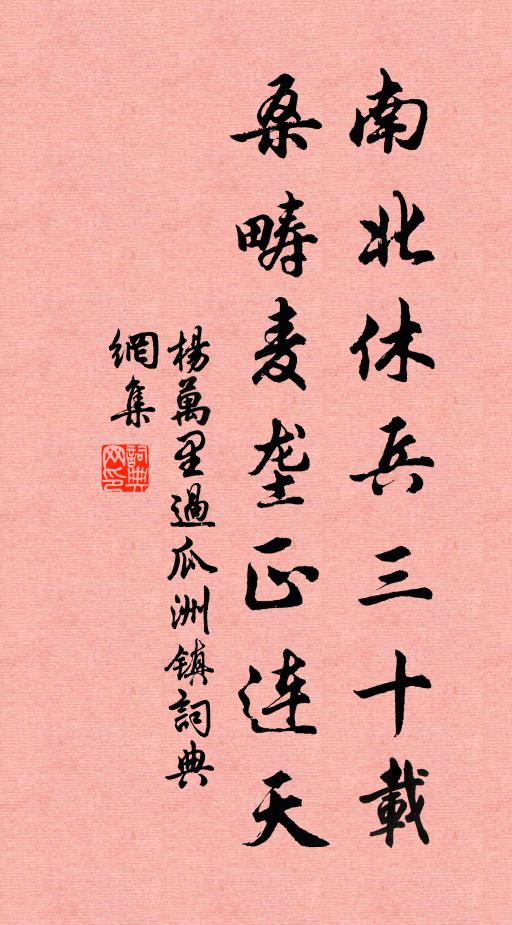 南北休兵三十載
桑疇麦垄正連天
楊萬里過瓜洲鎮詞典
網集
詞典
网印